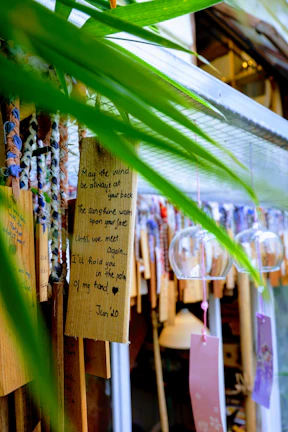 May the wind
be always at
your back
The sunshine warm
upon your face
Until we meet
again..
I'd hold you
in the palm
of my hand ♥
Jan '20